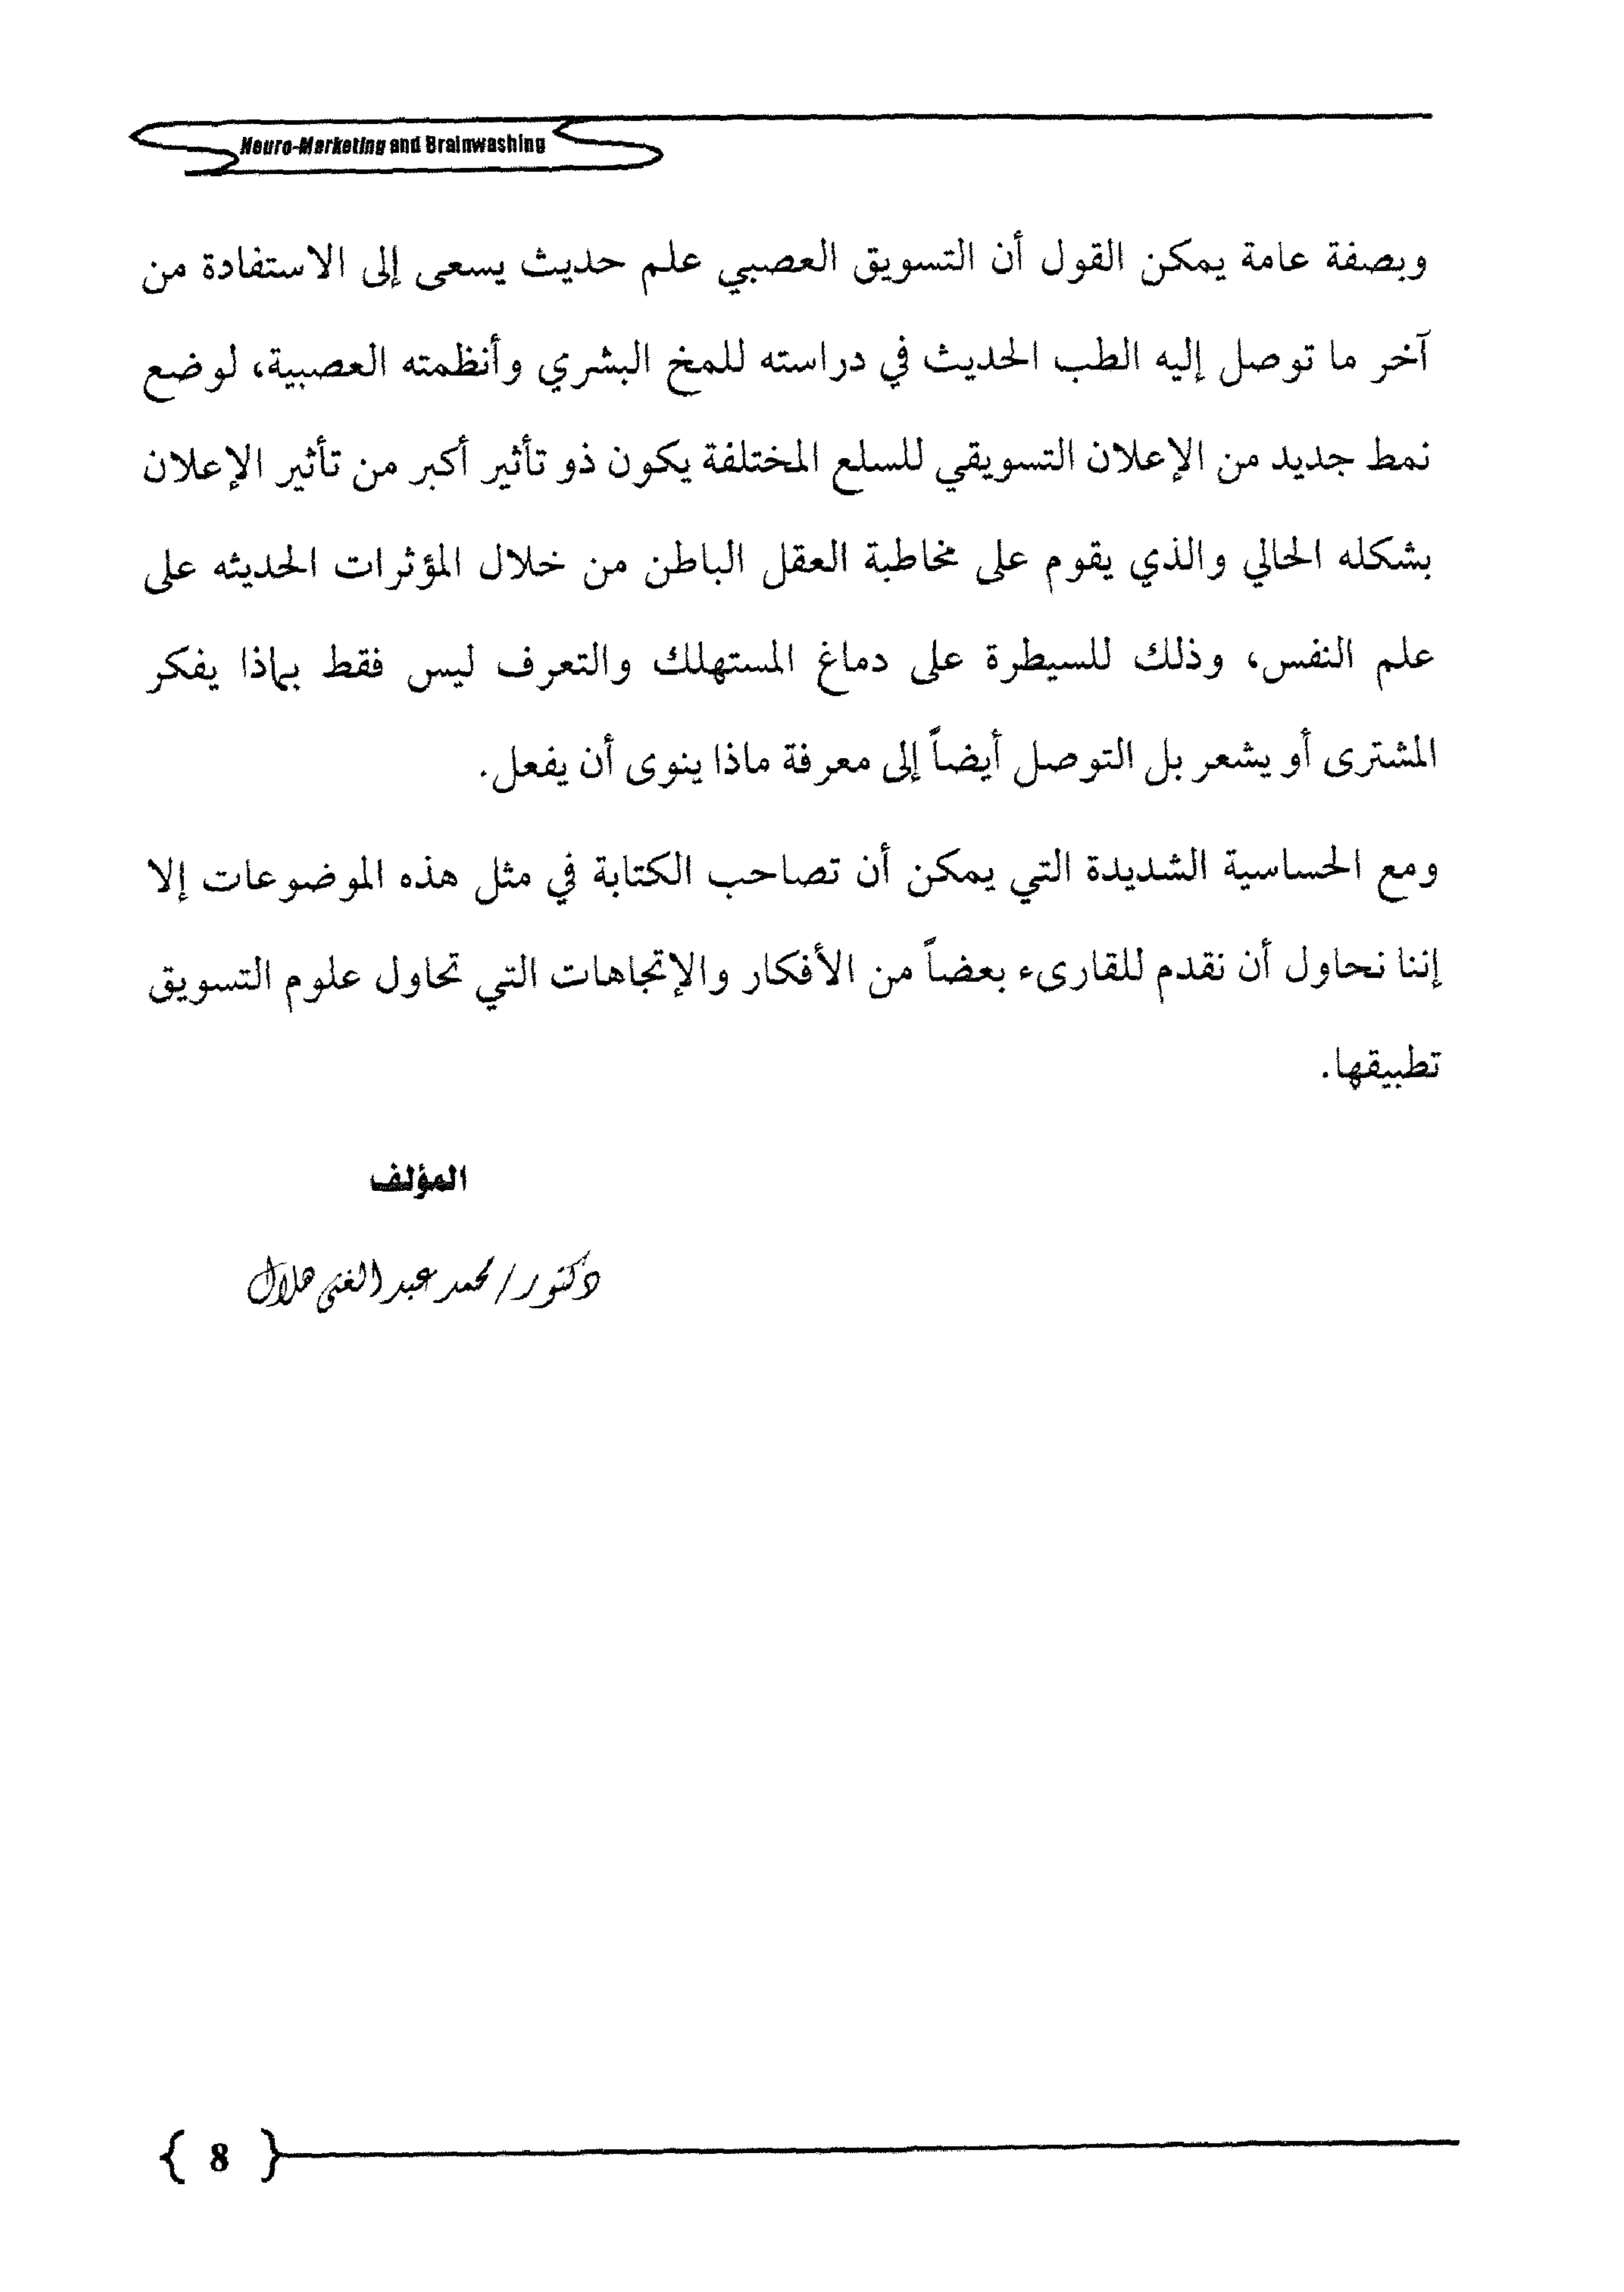 Neuro-Marketing and Brainwashing
وبصفة عامة يمكن القول أن التسويق العصبي علم حديث يسعى إلى الاستفادة من
آخر ما توصل إليه الطب الحديث في دراسته للمخ البشري وأنظمته العصبية، لوضع
نمط جديد من الإعلان التسويقي للسلع المختلفة يكون ذو تأثير أكبر من تأثير الإعلان
بشكله الحالي والذي يقوم على مخاطبة العقل الباطن من خلال المؤثرات الحديثه على
علم النفس، وذلك للسيطرة على دماغ المستهلك والتعرف ليس فقط بماذا يفكر
المشترى أو يشعر بل التوصل أيضاً إلى معرفة ماذا ينوى أن يفعل.
ومع الحساسية الشديدة التي يمكن أن تصاحب الكتابة في مثل هذه الموضوعات إلا
إننا نحاول أن نقدم للقارىء بعضاً من الأفكار والإتجاهات التي تحاول علوم التسويق
تطبيقها.
المؤلف
دكتور/ محمد عبد الغنى هلال
{ 8 }